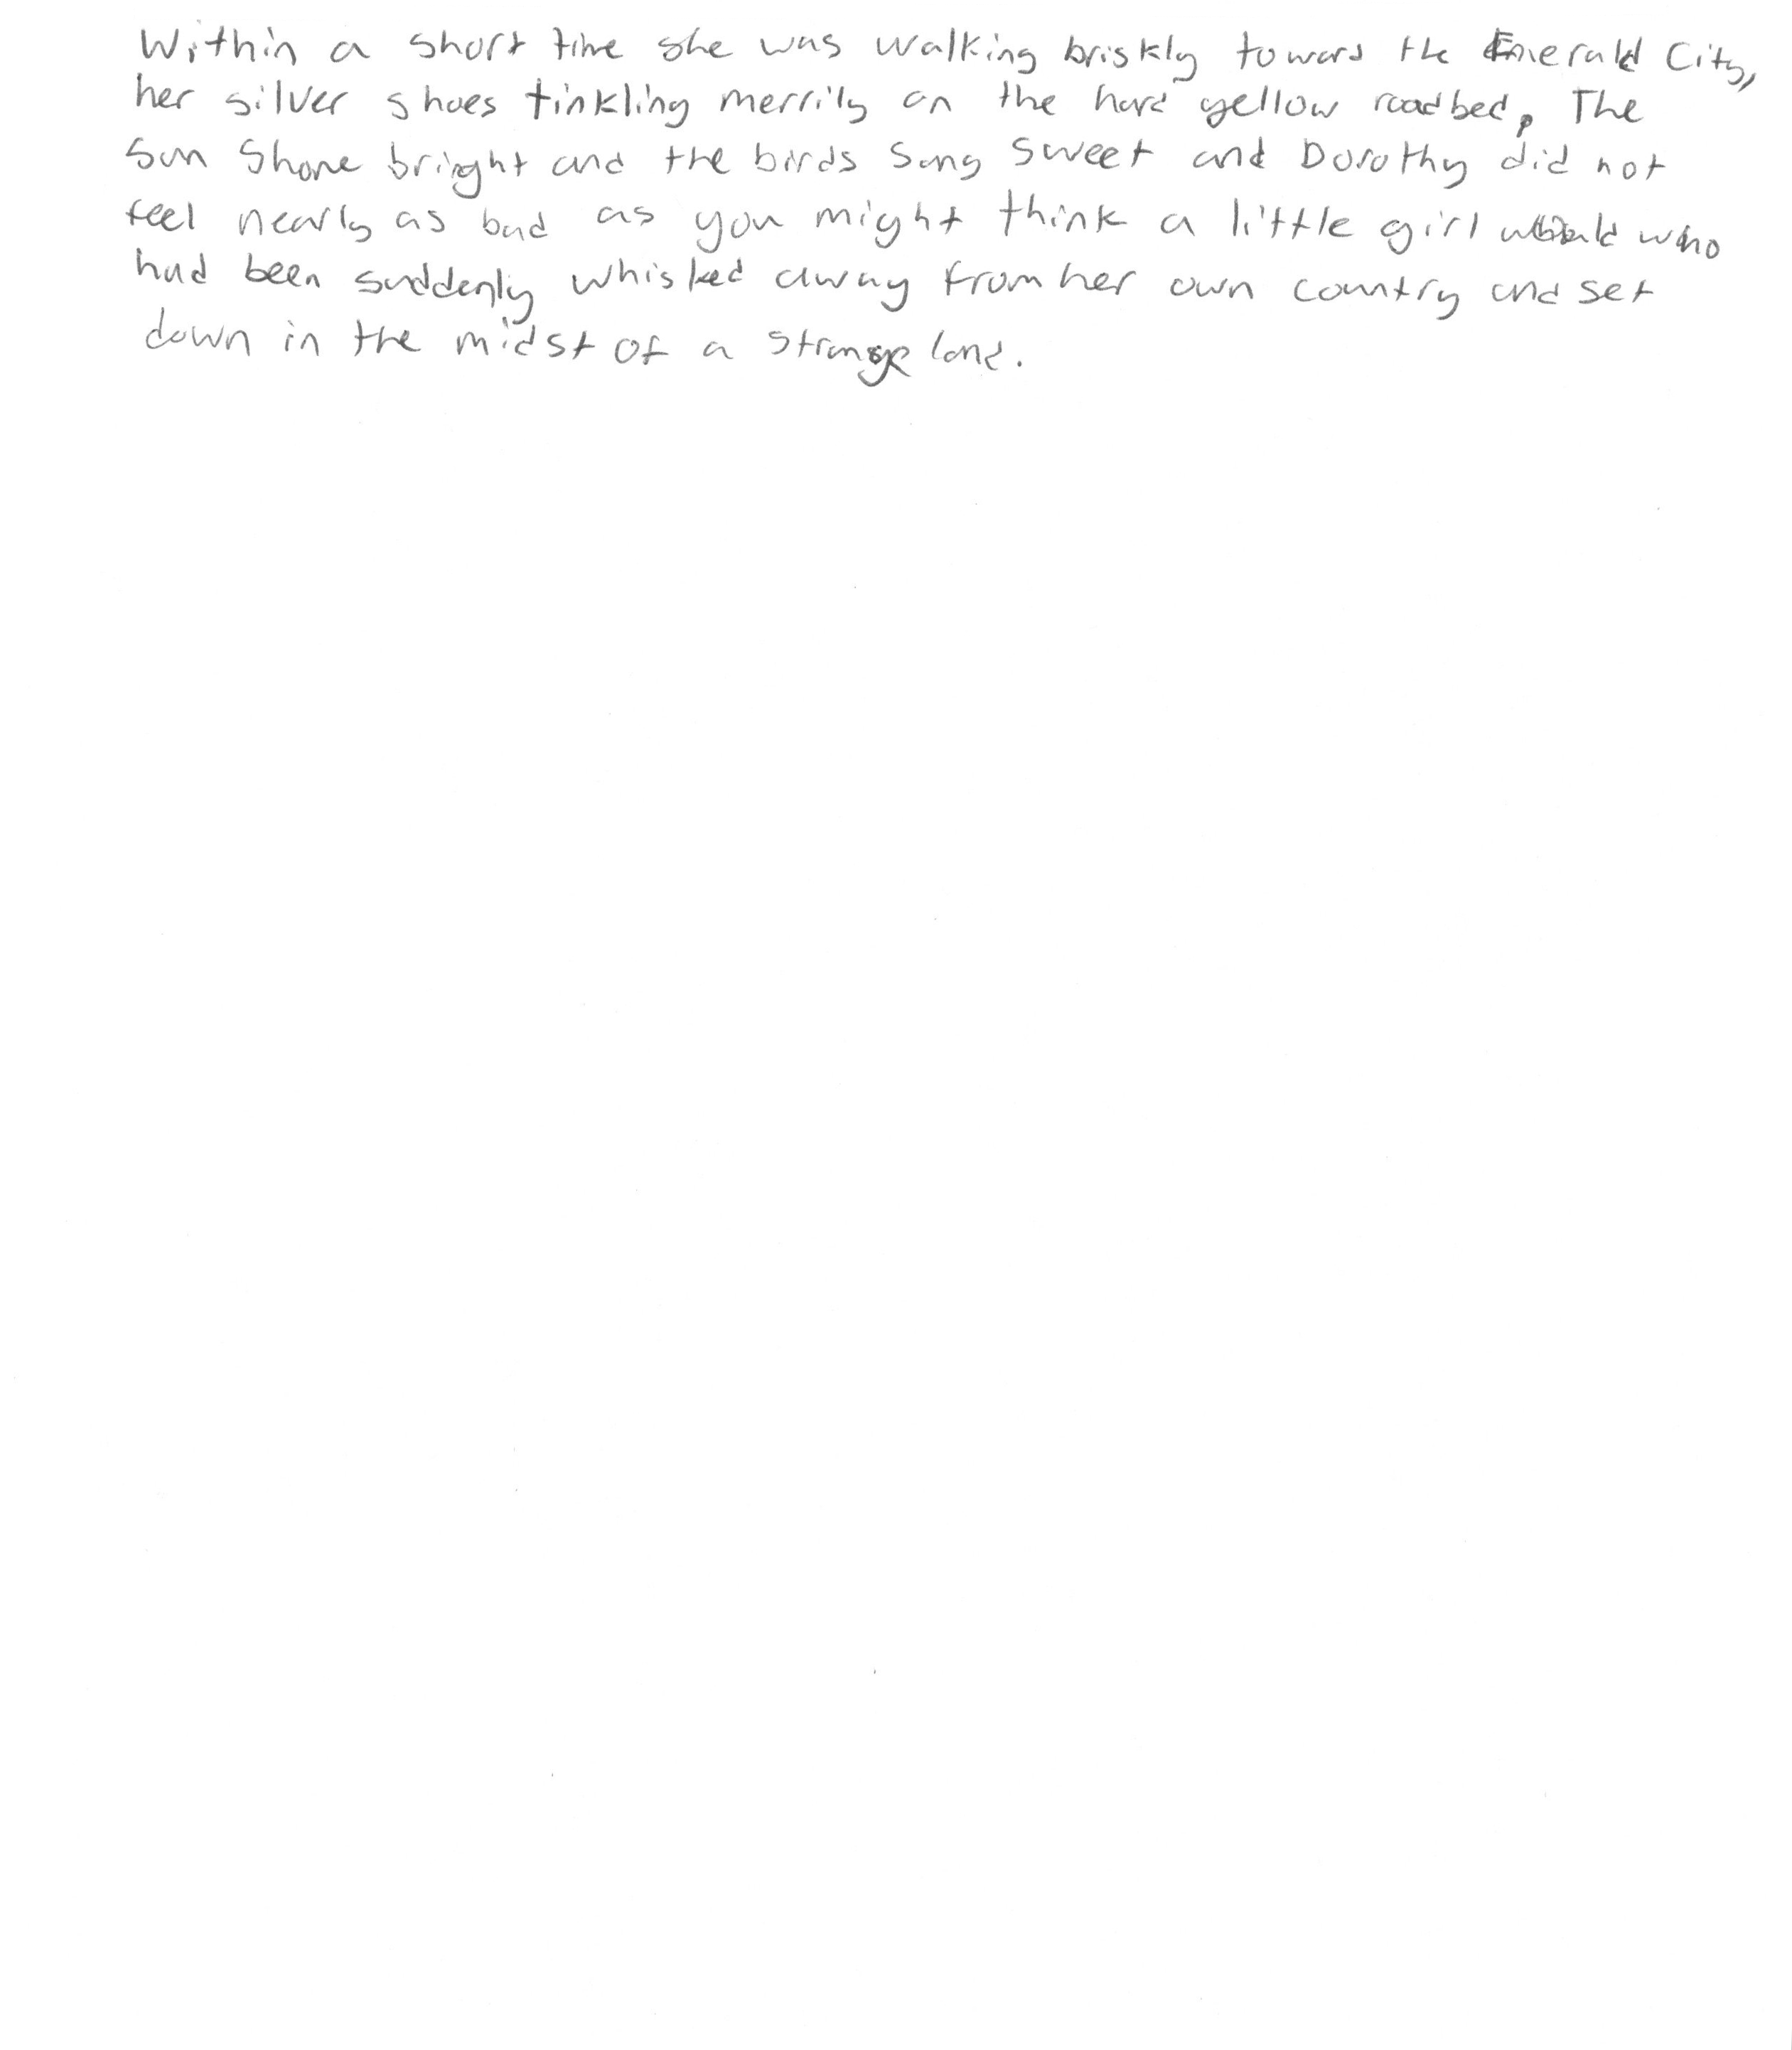 Within a short time she was walking briskly toward the Emerald City,
her silver shoes tinkling merrily on the hard yellow roadbed. The
sun shone bright and the birds sang sweet and Dorothy did not
feel nearly as bad as you might think a little girl would who
had been suddenly whisked away from her own country and set
down in the midst of a strange land.